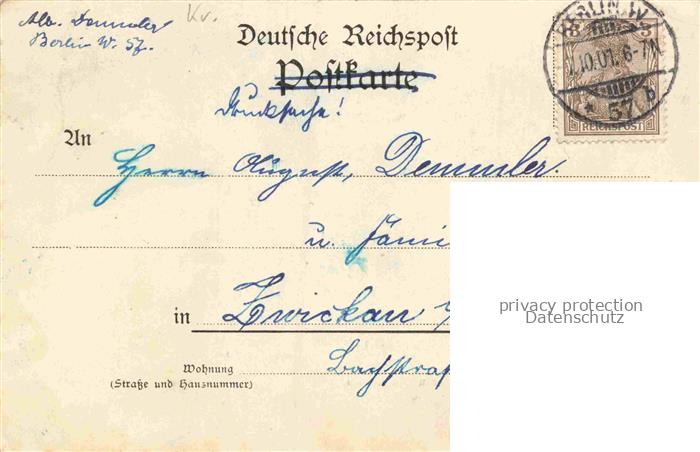 Alb. Demmler
Berlin W. 57.
Kv.
Deutsche Reichspost
Postkarte
Drucksache!
BERLIN. W.
.10.01. 6-7N
* 57 b
3 3
REICHSPOST
An
Herrn August, Demmler.
u. Fami
in Zwickau
Wohnung Bachstraß
(Straße und Hausnummer)
privacy protection
Datenschutz